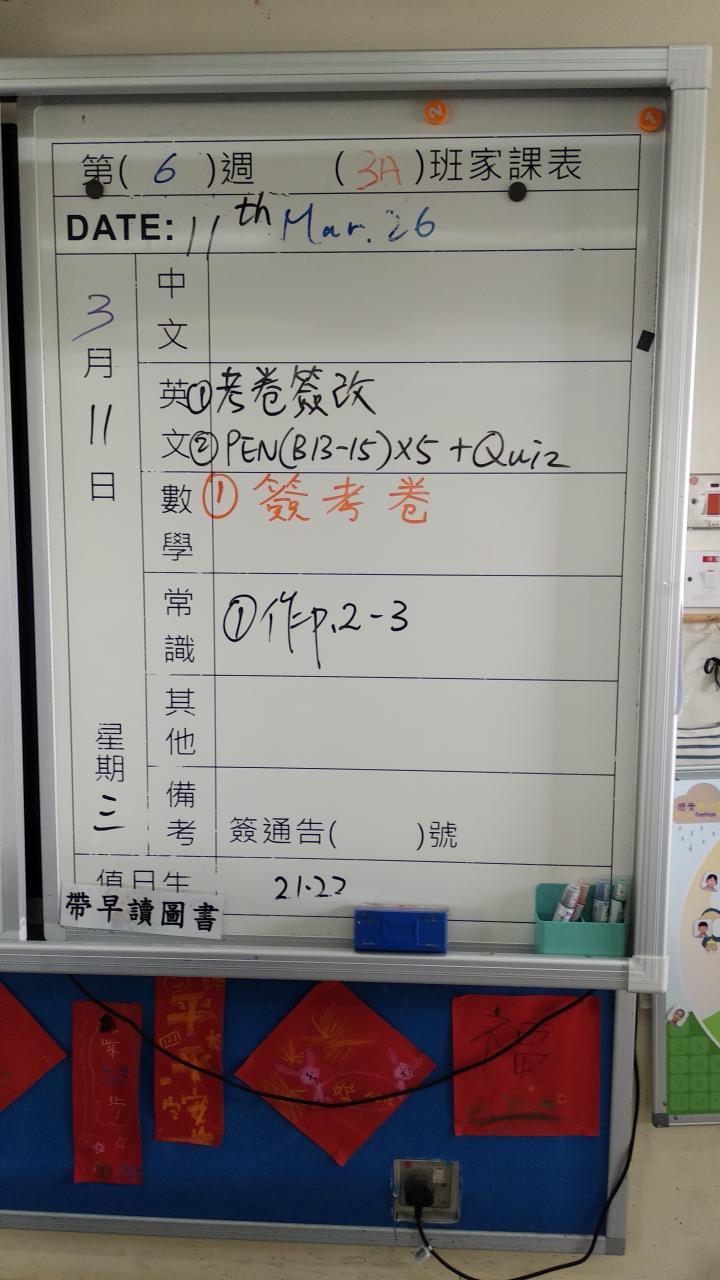 第( 6 )週 ( 3A )班家課表
DATE: 11th Mar. 26
3月11日
星期三
中文
英文
①考卷簽改
②PEN(B13-15)X5 +Quiz
數學
① 簽考卷
常識
①作p.2-3
其他
備考
簽通告( )號
值日生 21.22
帶早讀圖書
平平安安
福